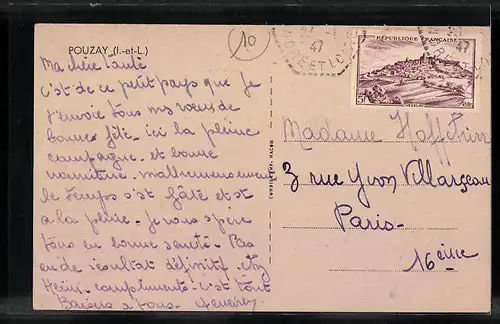 POUZAY (I.-et-L.)
10
47
INDRE ET LOIRE
47
RÉPUBLIQUE FRANÇAISE
5F
VÉZELAY
Ma chère
C'est de ce petit pays que je
t'envoie tous mes vœux de
bonne fête - ici la pleine
campagne et bonne
nourriture - malheureusement
le temps s'est gâté et est
à la pluie - je vous espère
tous en bonne santé - Pas
eu de résultat définitif
compliments - c'est tout
Baisers à tous
COMBIER IMP. MACON
Madame
3 rue Yvon Villarceau
Paris-
16ème